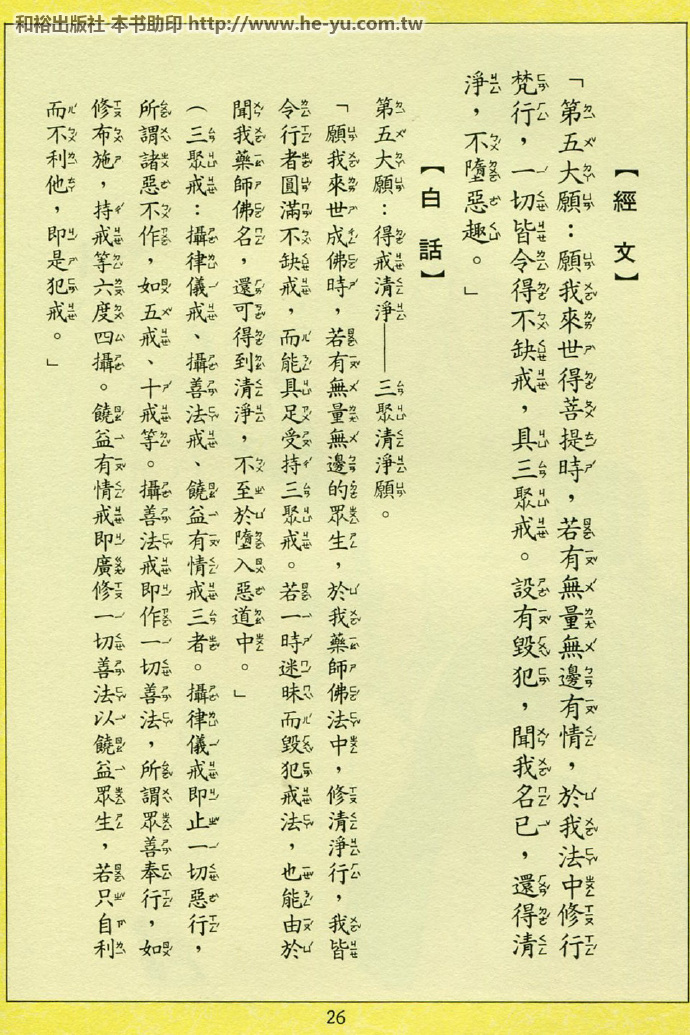 和裕出版社 本书助印 http://www.he-yu.com.tw
【經文】
「第五大願：願我來世得菩提時，若有無量無邊有情，於我法中修行
梵行，一切皆令得不缺戒，具三聚戒。設有毀犯，聞我名已，還得清
淨，不墮惡趣。」
【白話】
第五大願：得戒清淨——三聚清淨願。
「願我來世成佛時，若有無量無邊的眾生，於我藥師佛法中，修清淨行，我皆
令行者圓滿不缺戒，而能具足受持三聚戒。若一時迷昧而毀犯戒法，也能由於
聞我藥師佛名，還可得到清淨，不至於墮入惡道中。」
（三聚戒：攝律儀戒、攝善法戒、饒益有情戒三者。攝律儀戒即止一切惡行，
所謂諸惡不作，如五戒、十戒等。攝善法戒即作一切善法，所謂眾善奉行，如
修布施，持戒等六度四攝。饒益有情戒即廣修一切善法以饒益眾生，若只自利
而不利他，即是犯戒。」
26